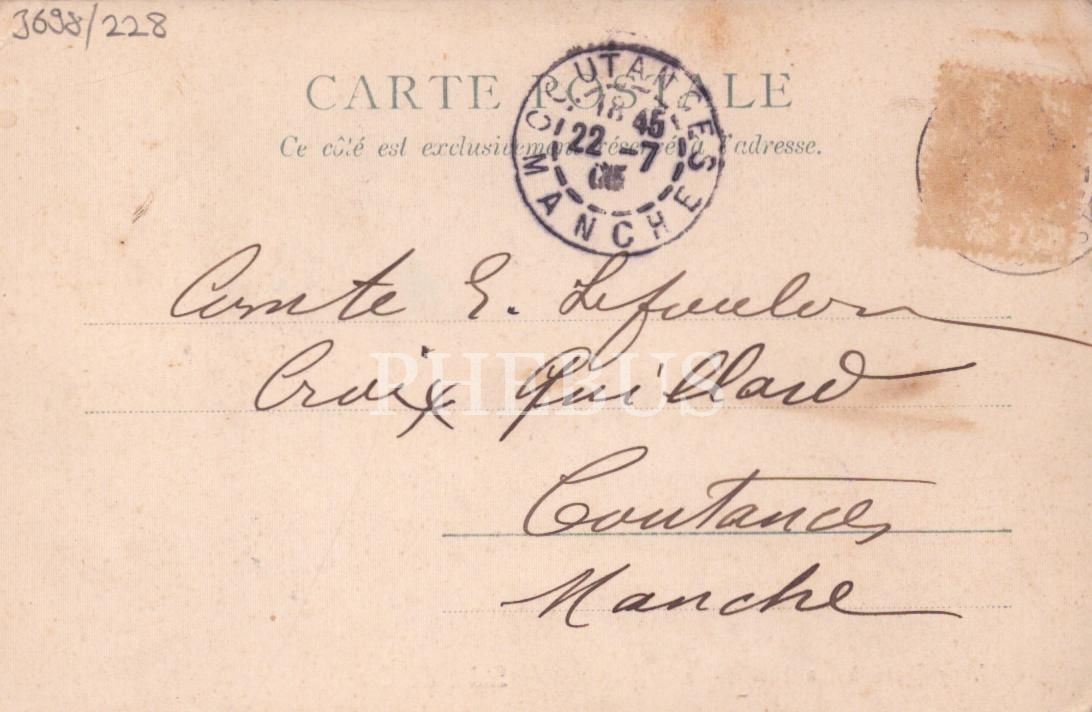 3698/228
CARTE POSTALE
Ce côté est exclusivement réservé à l'adresse.
COUTANCES
18 45
22 -7
05
MANCHE
Comte E. Lefoulon
Croix Quillard
Coutances
Manche
PHEBUS